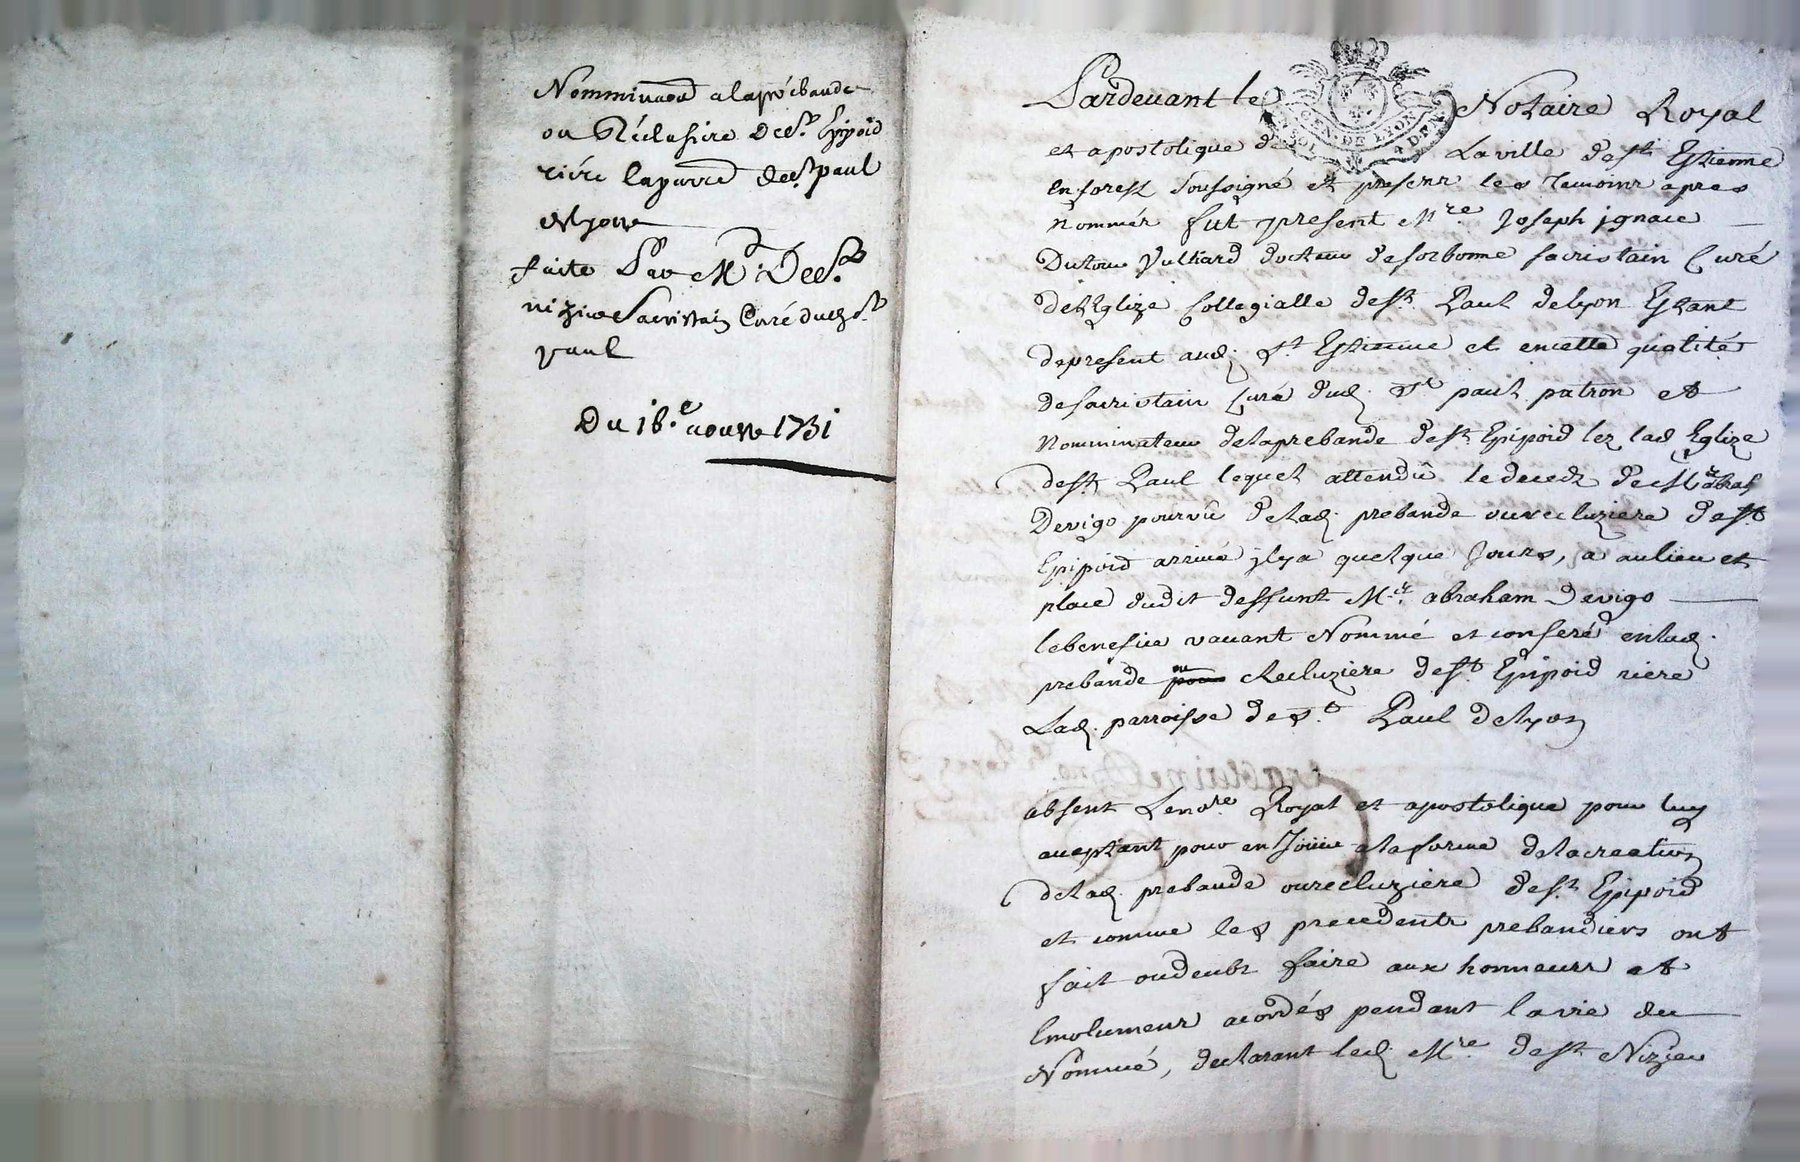 Nomminaon a la prébande
ou Réclusire de St. Epipoid
riére la parre. de St paul
de Lyon
faite Par Mr. De St.
nizier Sacristain Curé dud St.
paul
Du 16.e aoust 1731
Pardevant le Notaire Royal
GEN. DE LYON
et apostolique de La ville de St. Estienne
en forest soussigné et present les Temoins apres
nommés fut present Mre. Joseph ignace
Dutour Vulliard docteur de sorbonne sacristain Curé
de L'Eglize Collegialle de St. Paul de Lyon Estant
de present aud. St. Estienne et en cette qualité
de sacristain Curé dud. St. paul patron et
Nomminateur de la prebande de St. Epipoid lez lad Eglize
de St. Paul lequel attendû le deceds de Mre. abrah
Devigo pourvû de lad. prebande ou recluziere de St.
Epipoid arrivé il y a quelque Jours, a au lieu et
place dudit deffunt Mre. abraham Devigo
le benefice vacant Nommé et conferé en lad.
prebande ou Recluziere de St. Epipoid riere
Lad. parroisse de St. Paul de Lyon
absent Le nore. Royal et apostolique pour luy
aceptant pour en Joüir a la forme de la creation
de lad. prebande ou recluziere de St. Epipoid
et comme les precedents prebandiers ont
fait ou deubt faire aux honneurs et
Emolumens acordés pendant la vie du
Nommé, declarant led. Mre. de St. Nizier